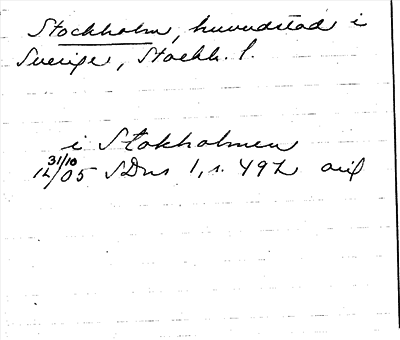 Stockholm, huvudstad i
Sverige, Stockh. l.
i Stokholmen
31/10
12/05 SDns 1, s. 492 avs